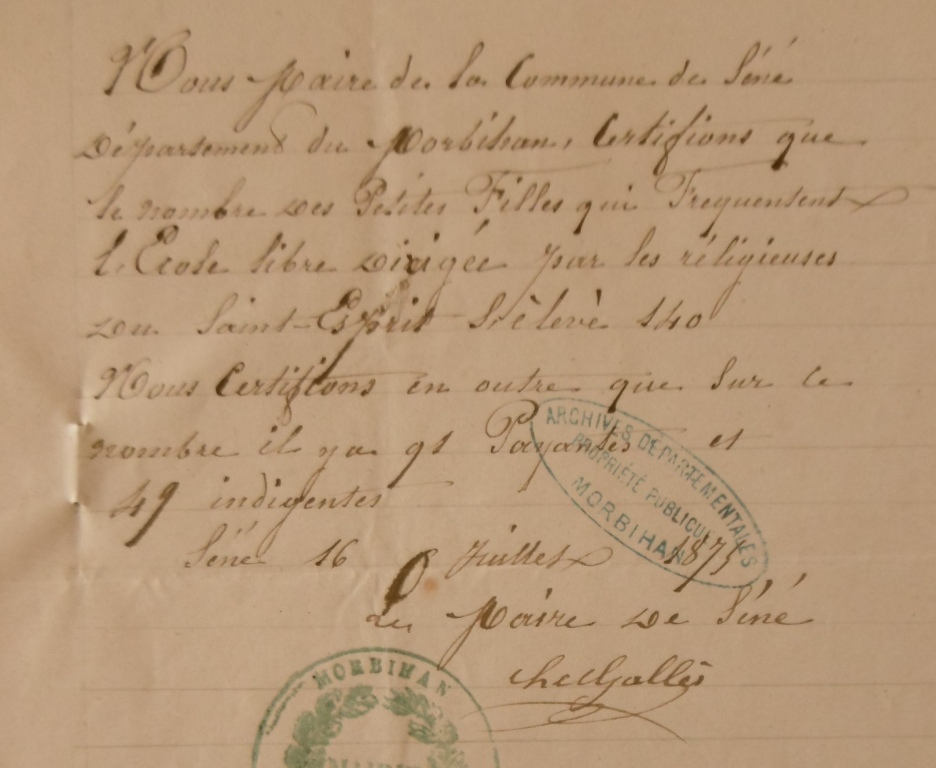 Nous Maire de la Commune de Séné
Département du Morbihan, Certifions que
le nombre des Pétites Filles qui Frequentent
l'Ecole libre Dirigée par les réligieuses
Du Saint-Esprit S'élevè 140
Nous Certifions en outre que Sur ce
nombre il y a 91 Payantes et
49 indigentes
Séné 16 Juillet 1875
Le Maire De Séné
ARCHIVES DÉPARTEMENTALES
PROPRIÉTÉ PUBLIQUE
MORBIHAN
MORBIHAN
MAIRIE